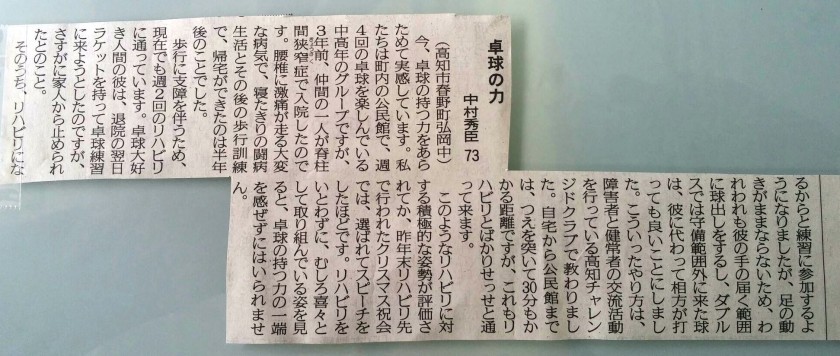 卓球の力
中村秀臣 73
（高知市春野町弘岡中）
今、卓球の持つ力をあら
ためて実感しています。私
たちは町内の公民館で、週
4回の卓球を楽しんでいる
中高年のグループですが、
3年前、仲間の一人が脊柱
間狭窄症で入院したので
す。腰椎に激痛が走る大変
な病気で、寝たきりの闘病
生活とその後の歩行訓練
で、帰宅ができたのは半年
後のことでした。
歩行に支障を伴うため、
現在でも週2回のリハビリ
に通っています。卓球大好
き人間の彼は、退院の翌日
ラケットを持って卓球練習
に来ようとしたのですが、
さすがに家人から止められ
たとのこと。
そのうち、リハビリにな
るからと練習に参加するよ
うになりましたが、足の動
きがままならないため、わ
れわれも彼の手の届く範囲
に球出しをするし、ダブル
スでは守備範囲外に来た球
は、彼に代わって相方が打
っても良いことにしまし
た。こういったやり方は、
障害者と健常者の交流活動
を行っている高知チャレン
ジドクラブで教わりまし
た。自宅から公民館まで
は、つえを突いて30分もか
かる距離ですが、これもリ
ハビリとばかりせっせと通
って来ます。
このようなリハビリに対
する積極的な姿勢が評価さ
れてか、昨年末リハビリ先
で行われたクリスマス祝会
では、選ばれてスピーチを
したほどです。リハビリを
いとわずに、むしろ喜々と
して取り組んでいる姿を見
ると、卓球の持つ力の一端
を感ぜずにはいられませ
ん。